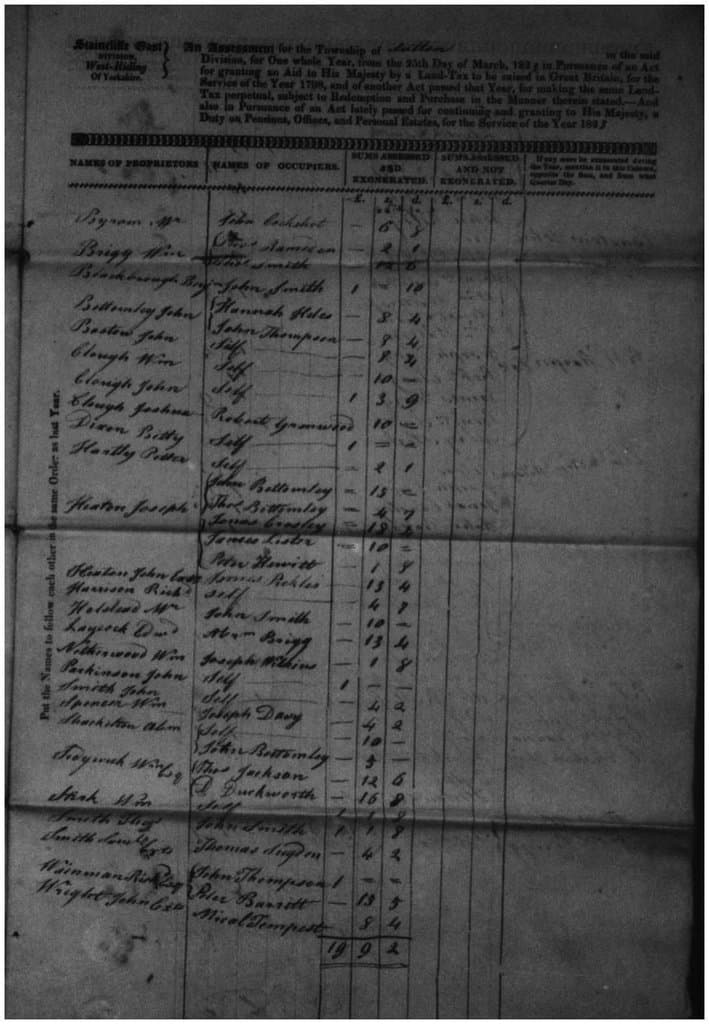 Staincliffe East
DIVISION,
West-Riding
Of Yorkshire.
An Assessment for the Township of Sutton in the said
Division, for One whole Year, from the 25th Day of March, 182 in Pursuance of an Act
for granting an Aid to His Majesty by a Land-Tax to be raised in Great Britain, for the
Service of the Year 1798, and of another Act passed that Year, for making the same Land-
Tax perpetual, subject to Redemption and Purchase in the Manner therein stated.—And
also in Pursuance of an Act lately passed for continuing and granting to His Majesty, a
Duty on Pensions, Offices, and Personal Estates, for the Service of the Year 182
NAMES OF PROPRIETORS NAMES OF OCCUPIERS. SUMS ASSESSED AND EXONERATED. SUMS ASSESSED AND NOT EXONERATED. If any more be exonerated during the Year, mention it in this Column, opposite the Sum, and from what Quarter Day.
£. s. d. £. s. d.
Put the Names to follow each other in the same Order as last Year.
Byrom Mr John Cockshot — 6
Thos Rameson — 2 1
Brigg Wm Smith 12 6
Blackbrough John Smith 1 = 10
Bottomley John Hannah — 8 4
Bostow John John Thompson — 8 4
Clough Wm Self — 8 4
Clough John Self — 10 —
Clough Joshua Self 1 3 9
Dixon Betty Robert Greenwood — 10 =
Hartley Peter Self 1 = =
Self — 2 1
Heaton Joseph John Bottomley = 13 =
Thos Bottomley — 4 7
Jonas Crosley = 18
James Lister — 10 =
Peter Hewitt — 1 8
Heaton John James Pickles — 13 4
Harrison Richd Self — 4 8
Holdsead Mr John Smith — 10 —
Laycock Edwd Abrm Brigg — 13 4
Netherwood Wm Joseph Wilkins — 1 8
Parkinson John Self 1 — —
Smith John Self — 4 2
Spencer Wm Joseph Davy — 4 2
Shackelton Abm Self — 10 —
John Bottomley — 5 —
Sidgwick Wm Esq Thos Jackson — 12 6
Duckworth — 16 8
Wm Self 1 1 8
Smith John Smith 1 1 8
Smith Thomas Sugden — 4 2
Wainman Richd Esq John Thompson 1 = =
Peter Barrett — 13 5
Wright John Exs Mical Tempest 8 4
19 9 2